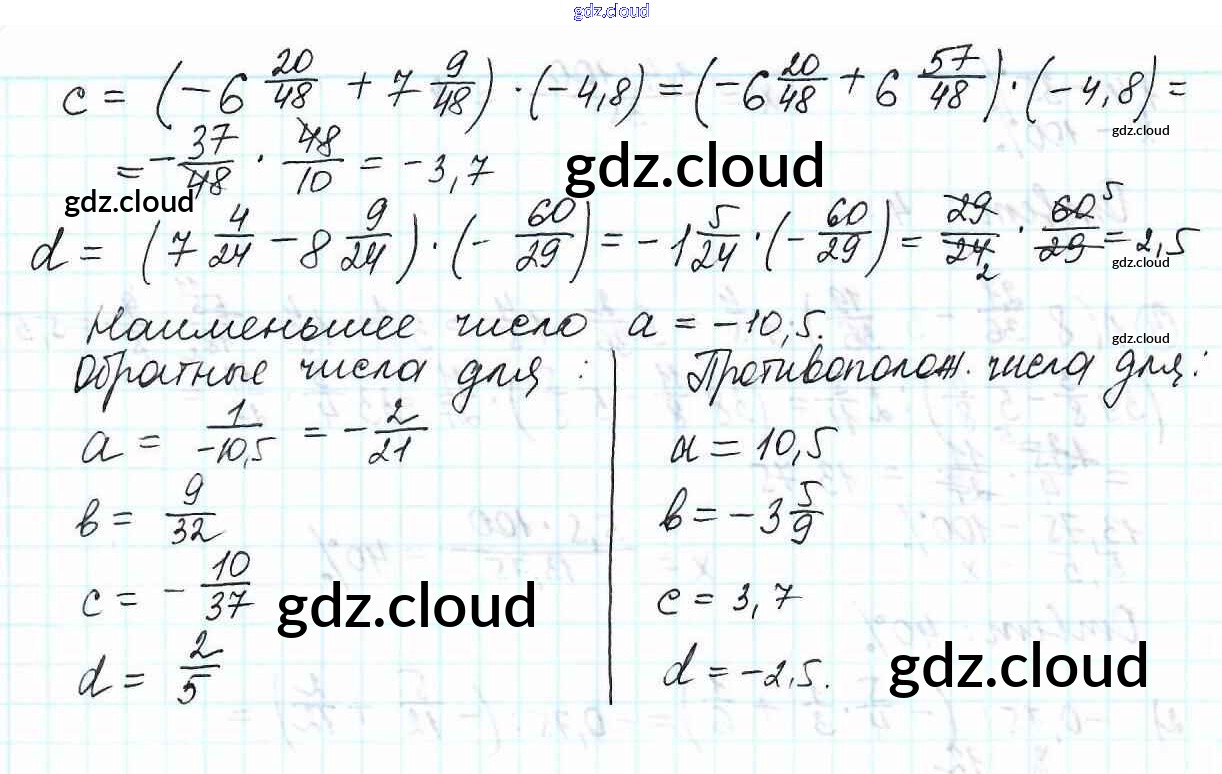 gdz.cloud
c = (-6 20/48 + 7 9/48) · (-4,8) = (-6 20/48 + 6 57/48) · (-4,8) =
gdz.cloud
= - 37/48 · 48/10 = -3,7
gdz.cloud
gdz.cloud
d = (7 4/24 - 8 9/24) · (- 60/29) = -1 5/24 · (- 60/29) = 29/24 2 · 60/29 5 = 2,5
gdz.cloud
Наименьшее число a = -10,5.
gdz.cloud
Обратные числа для :
a = 1/-10,5 = - 2/21
в = 9/32
c = - 10/37
gdz.cloud
d = 2/5
Противополож. числа для:
a = 10,5
в = -3 5/9
c = 3,7
d = -2,5.
gdz.cloud